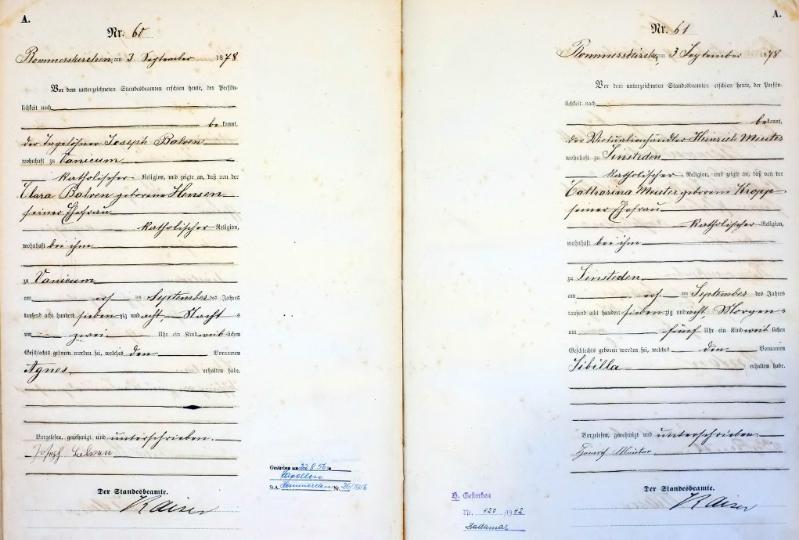 A.
Nr. 60
Rommerskirchen, am 3 September 1878
Vor dem unterzeichneten Standesbeamten erschien heute, der Persön-
lichkeit nach
be kannt,
der Tagelöhner Joseph
wohnhaft zu Vanicum
katholischer Religion, und zeigte an, daß von der
Clara geborene
seiner Ehefrau
katholischer Religion,
wohnhaft bei ihm
zu Vanicum
am ersten September des Jahres
tausend acht hundert sieben zig und acht, Nachts
um zwei Uhr ein Kind weib lichen
Geschlechts geboren worden sei, welches den Vornamen
Agnes erhalten habe.
Vorgelesen, genehmigt und unterschrieben.
Joseph
Der Standesbeamte.
Kaiser
Gestorben am 22.8.56
St.A. Nr.
A.
Nr. 61
Rommerskirchen, am 3 September 1878
Vor dem unterzeichneten Standesbeamten erschien heute, der Persön-
lichkeit nach
be kannt,
der Victualienhändler Heinrich
wohnhaft zu Sinsteden
katholischer Religion, und zeigte an, daß von der
Catharina geborene Kropp
seiner Ehefrau
katholischer Religion,
wohnhaft bei ihm
zu Sinsteden
am ersten September des Jahres
tausend acht hundert sieben zig und acht, Morgens
um fünf Uhr ein Kind weib lichen
Geschlechts geboren worden sei, welches den Vornamen
Sibilla erhalten habe.
Vorgelesen, genehmigt und unterschrieben.
Heinrich
Der Standesbeamte.
Kaiser
Gestorben
Nr. 1942
Hadamar